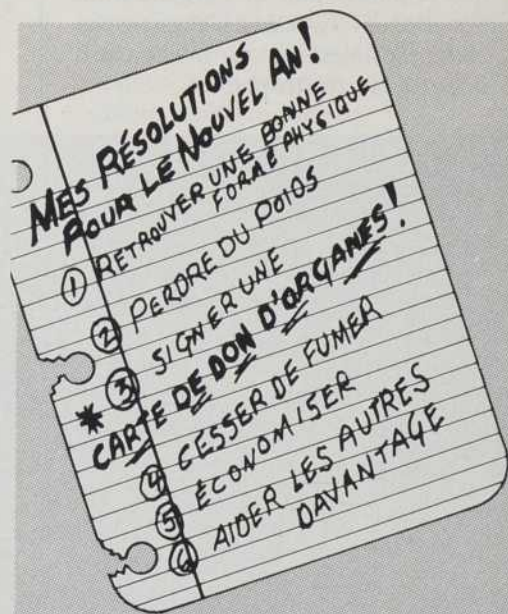 MES RÉSOLUTIONS
POUR LE NOUVEL AN!
① RETROUVER UNE BONNE
FORME PHYSIQUE
② PERDRE DU POIDS
* ③ SIGNER UNE
CARTE DE DON D'ORGANES!
④ CESSER DE FUMER
⑤ ÉCONOMISER
⑥ AIDER LES AUTRES
DAVANTAGE